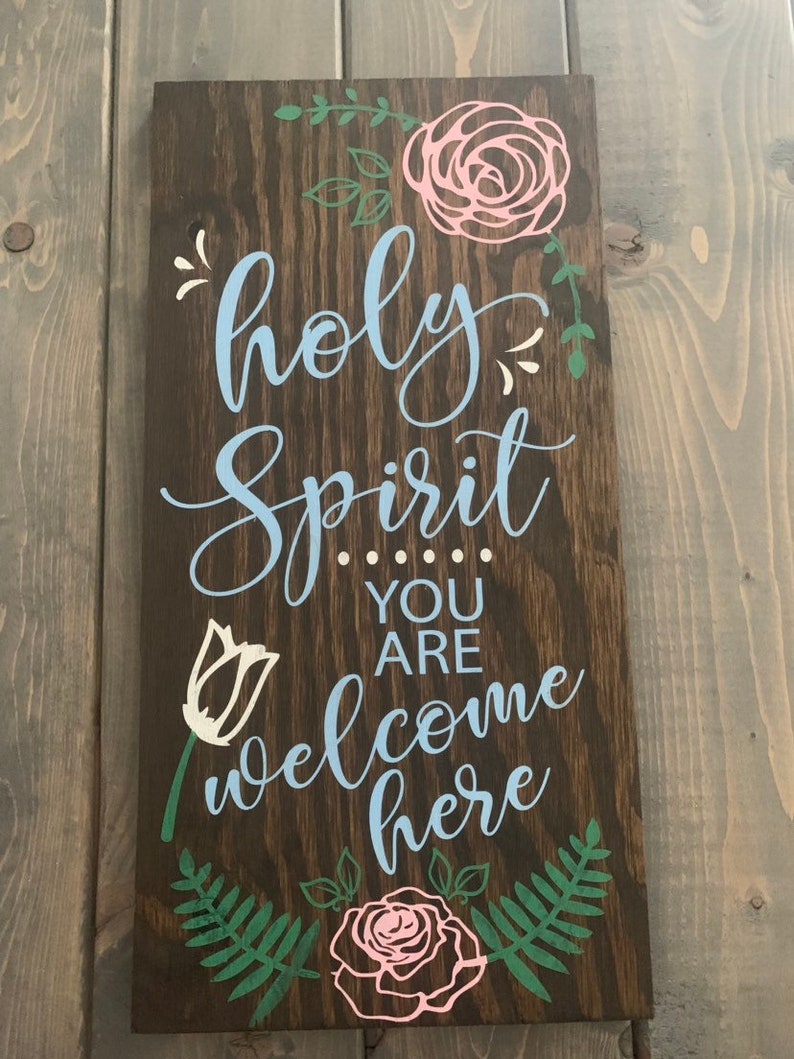 holy
Spirit
YOU
ARE
welcome
here